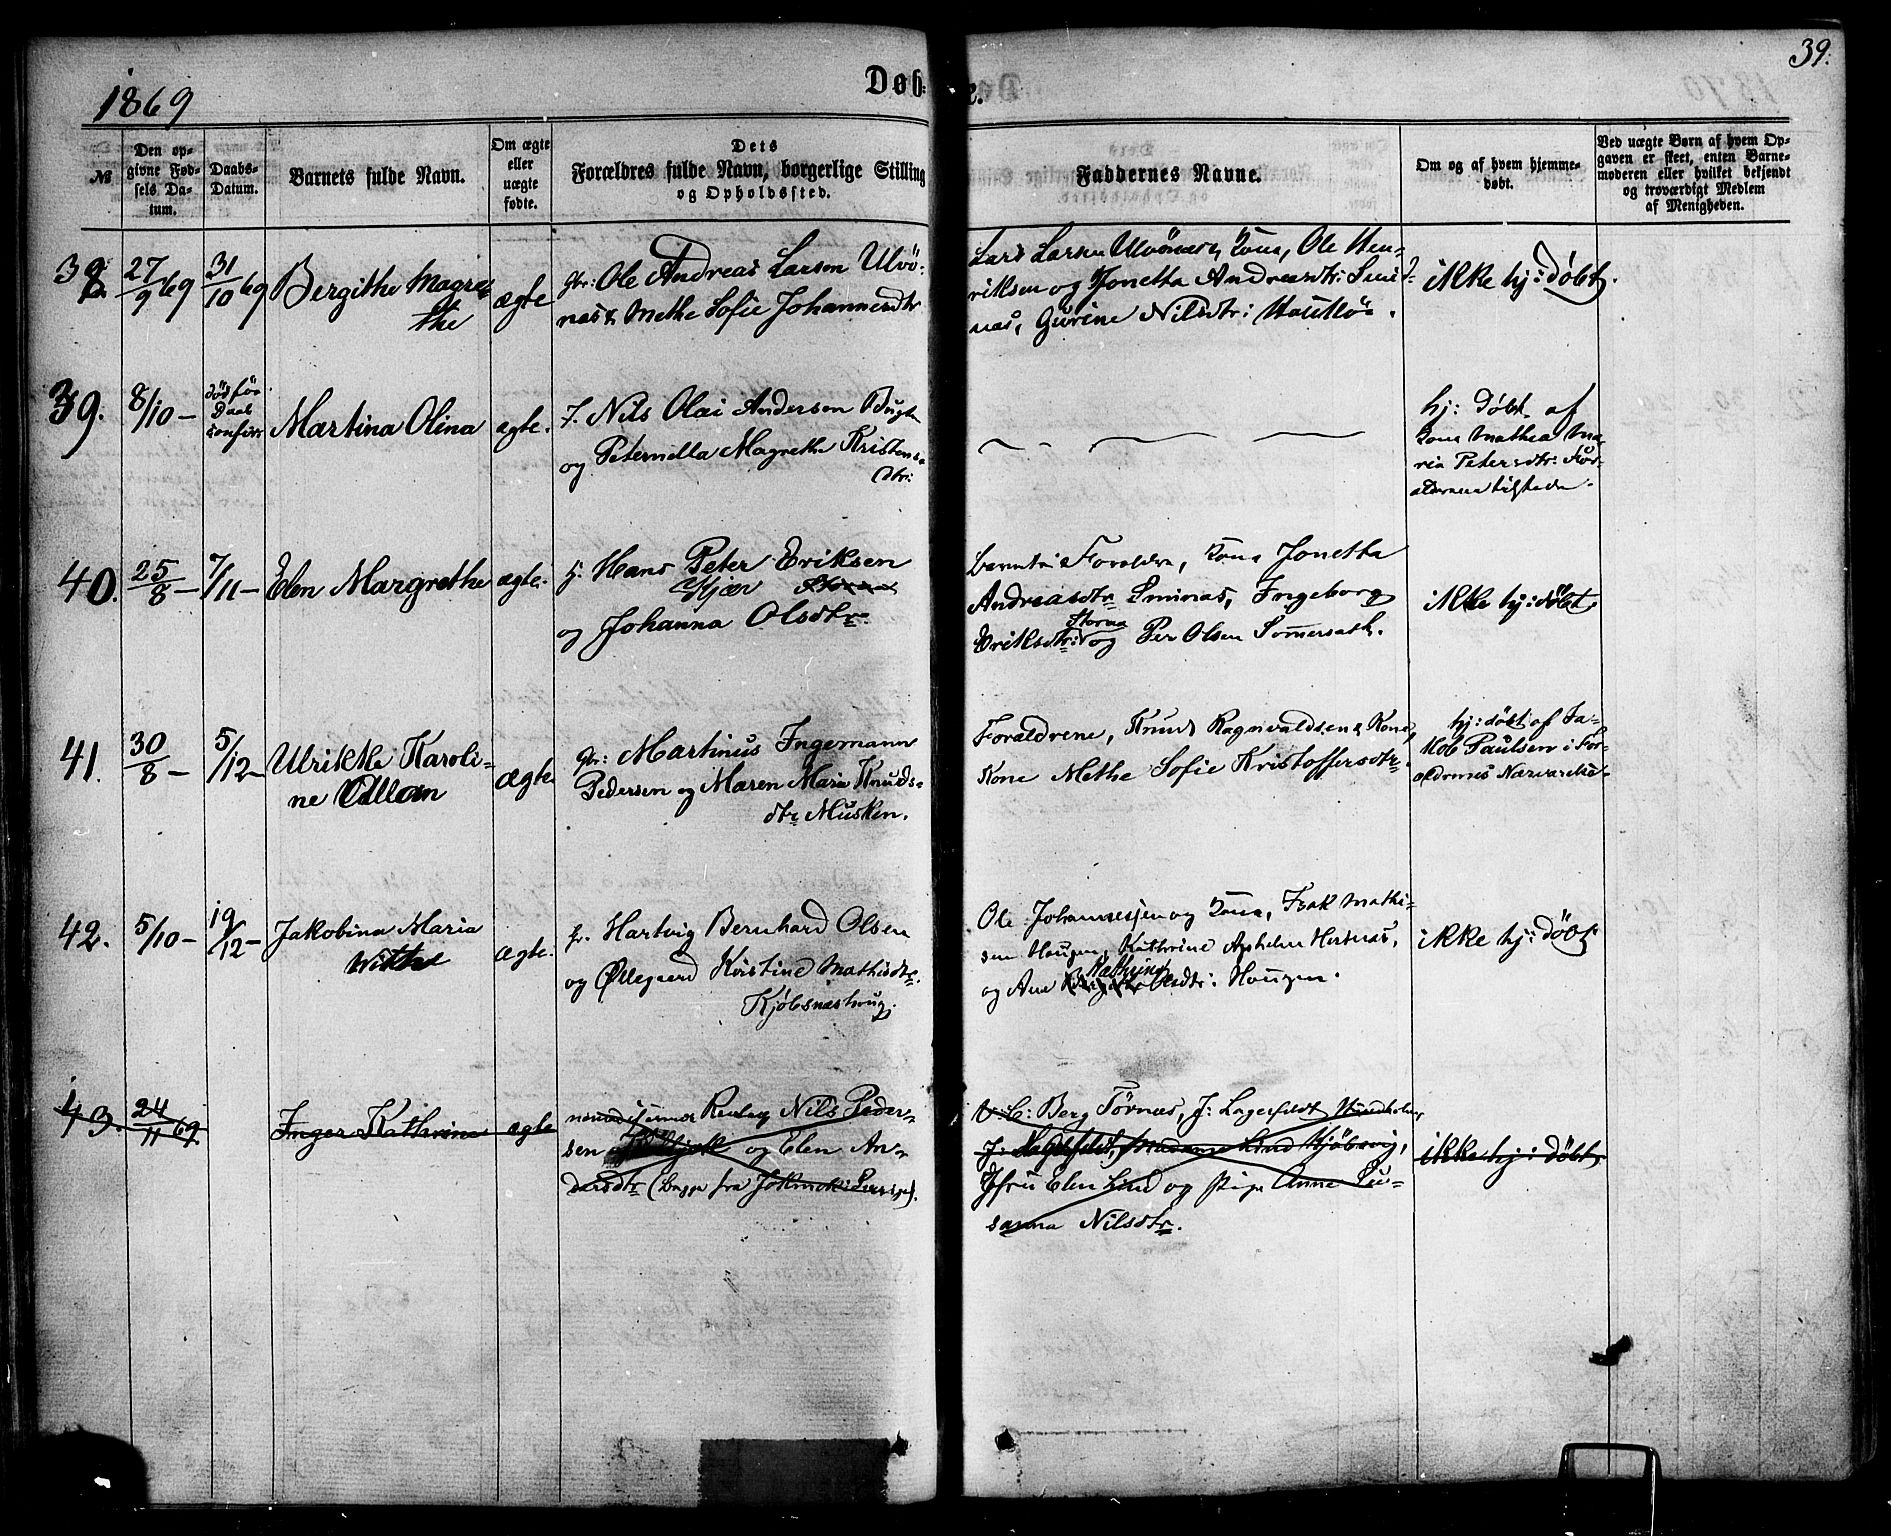 39.
1869
Døb-
te.
№
Den op-
givne Fød-
sels Da-
tum.
Daabs-
Datum.
Barnets fulde Navn.
Om ægte
eller
uægte
fødte.
Dets
Forældres fulde Navn, borgerlige Stilling
og Opholdssted.
Faddernes Navne.
Om og af hvem hjemme-
døbt.
Ved uægte Børn af hvem Op-
gaven er skeet, enten Barne-
moderen eller hvilket bekjendt
og troværdigt Medlem
af Menigheden.
38
27/9 69
31/10 69
Bergithe Magre-
the
ægte
Gbr: Ole Andreas Larsen Ulvö-
nas & Methe Sofie Johannesdtr
Lars Larsen Ulvönas, Kona, Ole Hen-
riksen og Jonetha Andreasdtr:
nas, Gurine Nilsdtr:
ikke hj: døbt.
39.
8/10 –
död för
Daab
Martina Olina
ægte.
F. Nils Olai Andersen
og Peternella Magrethe Kristens-
dtr:
hj: Døbt af
Kona Mathea Ma-
ria Petersdtr: For-
ældrene tilstede.
40.
25/8 –
7/11 –
Elen Margrethe
ægte.
Hans Peter Eriksen
Kjær
og Johanna Olsdtr.
Barnets Forældre, Kona Jonetha
Andreasdtr Sminas, Ingeborg
Eriksdtr: og Per Olsen Somersæth.
ikke hj: døbt.
41.
30/8 –
5/12 –
Ulrikke Karoli-
ne
ægte
Gbr: Martinus Ingemann
Pedersen og Maren Maria Knuds-
dtr Musken.
Forældrene, Knud Ragnvaldsen & Kone,
Kone Methe Sofie Kristoffersdtr.
hj: døbt af Ja-
kob Paulsen i For-
ældrenes Nærværelse.
42.
5/10 –
19/12 –
Jakobina Maria
Withe
ægte.
Hartvig Bernhard Olsen
og Øllegaard Kristine Mathisdtr.
Ole Johannesen og Kona, Isak Mathi-
sen Haugen, Kathrine
og Ane Kathrine Olsdtr: Haugen.
ikke hj: Døbt
43.
24/11 69.
Inger Kathrine
ægte
Nils Peder-
sen og Elen An-
dersdtr (begge fra
Berg Törnæs, J: Lagerfeldt
J: Lagerfeldt, Madame Lind Kjöbsvig,
Jfru Elen Lind og pige Anne Su-
sanna Nilsdtr.
ikke hj: døbt